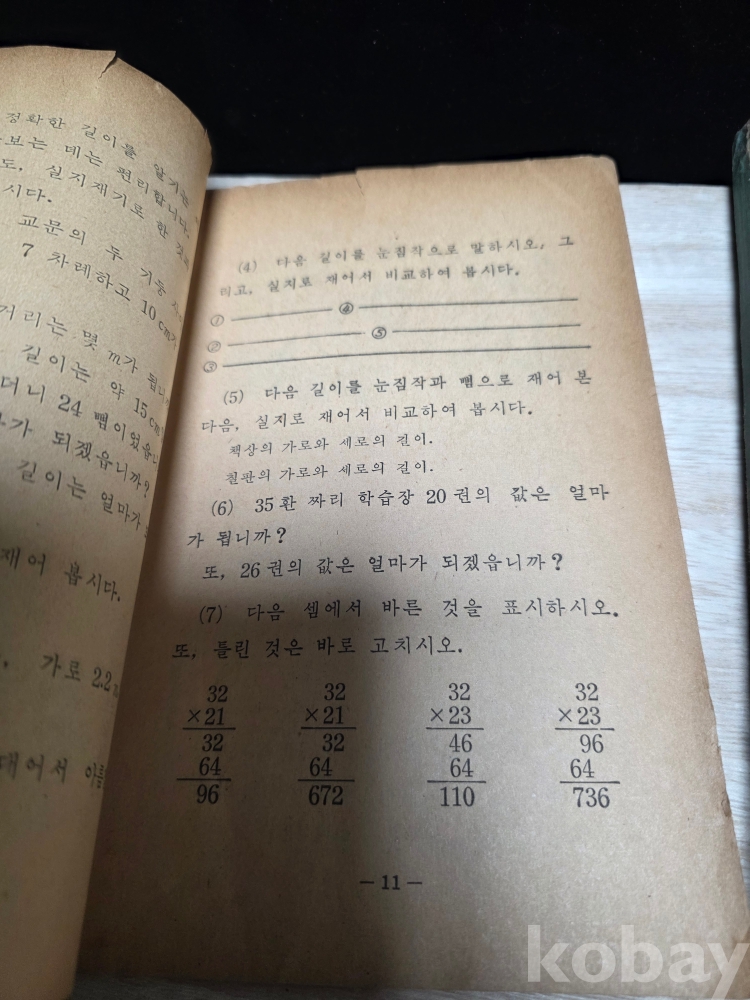 정확한 길이를 알기는
보는 데는 편리합니다.
도, 실지재기로 한 것
시다.
교문의 두 기둥
7 차례하고 10cm가
거리는 몇 m가 됩니
길이는 약 15cm
더니 24 뼘이었읍니
가 되겠읍니까?
길이는 얼마가
재어 봅시다.
가로 2.2
재어서
(4) 다음 길이를 눈짐작으로 말하시오, 그
리고, 실지로 재어서 비교하여 봅시다.
① ④
② ⑤
③
(5) 다음 길이를 눈짐작과 뼘으로 재어 본
다음, 실지로 재어서 비교하여 봅시다.
책상의 가로와 세로의 길이.
칠판의 가로와 세로의 길이.
(6) 35환 짜리 학습장 20권의 값은 얼마
가 됩니까?
또, 26권의 값은 얼마가 되겠읍니까?
(7) 다음 셈에서 바른 것을 표시하시오.
또, 틀린 것은 바로 고치시오.
32 32 32 32
×21 ×21 ×23 ×23
32 32 46 96
64 64 64 64
96 672 110 736
— 11 —
kobay